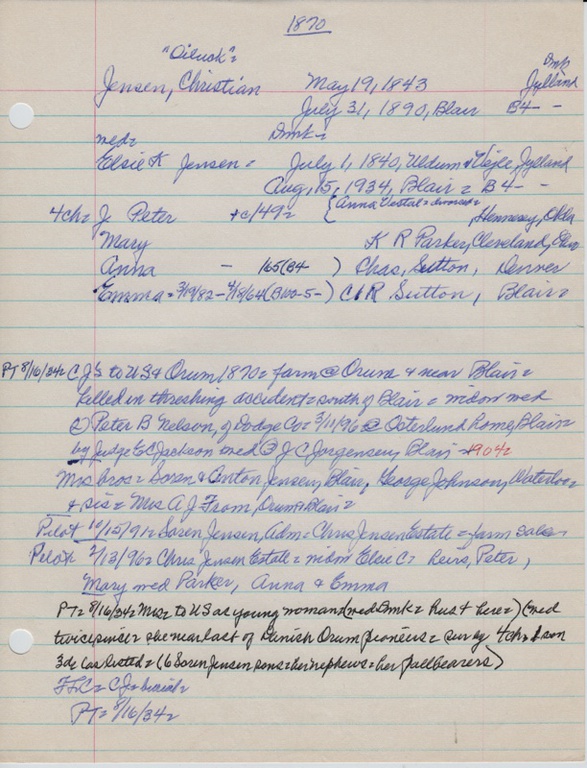 1870
"Oiluck"=
Jensen, Christian May 19, 1843 Dmk Jylland
July 31, 1890, Blair B4 - -
med= Dmk=
Elsie K Jensen= July 1, 1840, Uldum & Vejle, Jylland
Aug, 15, 1934, Blair= B4 - -
4ch= J Peter +c/49= {Anna Vestal= Hennesey, Okla
Mary K R Parker, Cleveland,
Anna - 165(B4 ) Chas, Sutton, Denver
Emma= 3/19/82 - 4/18/64 (B100-5-) C R Sutton, Blair=
PT 8/16/34= C J's to US & Orum, 1870= farm @ Orum & near Blair=
killed in threshing accident= south of Blair= widow med
② Peter B Nelson, of Dodge Co= 3/11/96 @ Osterlund home, Blair
by Judge E C Jackson med ③ J C Jorgensen, Blair - 1904=
Mrs bros= Soren & Anton, Jensen, Blair, George Johnson, Waterloo=
& sis= Mrs A J From, Orum & Blair=
Pilot 10/15/91= Soren Jensen, Adm= Chris Jensen Estate= farm sale=
Pilot 2/13/96= Chris Jensen Estate= widow Elsie C= heirs, Peter,
Mary med Parker, Anna & Emma
PT= 8/16/34= Mrs= to US as young woman (med Dmk= hus & here=) (med
twice since= she near last of Danish Orum pioneers= sur by 4ch= 1 son
3da as listed= (6 Soren Jensen sons= her nephews= her pallbearers)
FTC= CJ= burial=
PT= 8/16/34=